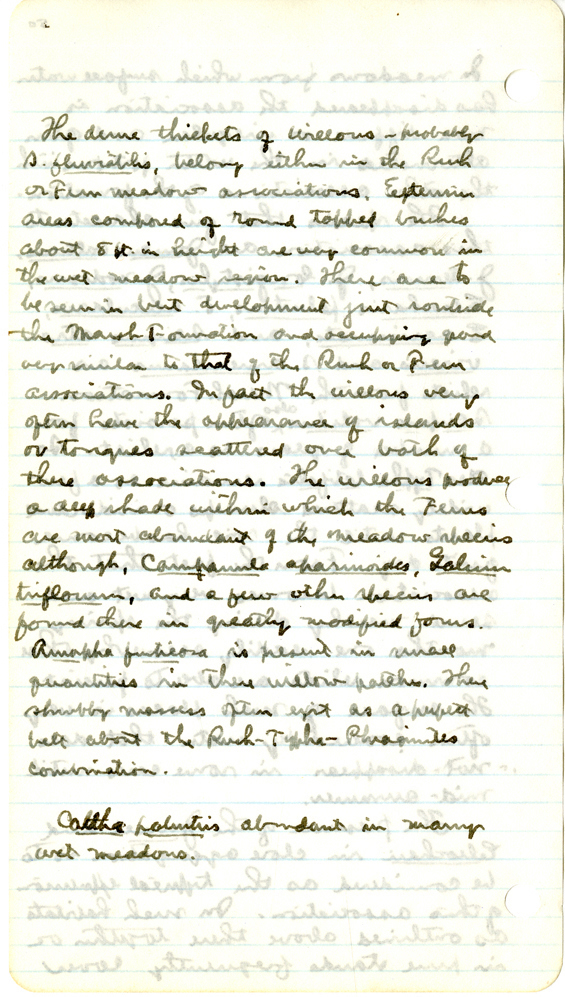 The dense thickets of willows - probably
S. fluviatilis, belong either in the Rush
or Fern meadow associations. Extensive
areas composed of round topped bushes
about 8 ft. in height are very common in
the wet meadow region. These are to
be seen in best development just outside
the Marsh Formation and occupying ground
very similar to that of the Rush or Fern
associations. In fact the willows very
often have the appearance of islands
or tongues scattered over both of
these associations. The willows produce
a deep shade within which the Ferns
are most abundant of the meadow species
although, Campanula aparinoides, Galium
triflorum, and a few other species are
found there in greatly modified forms.
Amorpha fruticosa is present in small
quantities in these willow patches. These
shrubby masses often exist as a perfect
belt about the Rush-Typha-Phragmites
combination.
Caltha palustris abundant in many
wet meadows.